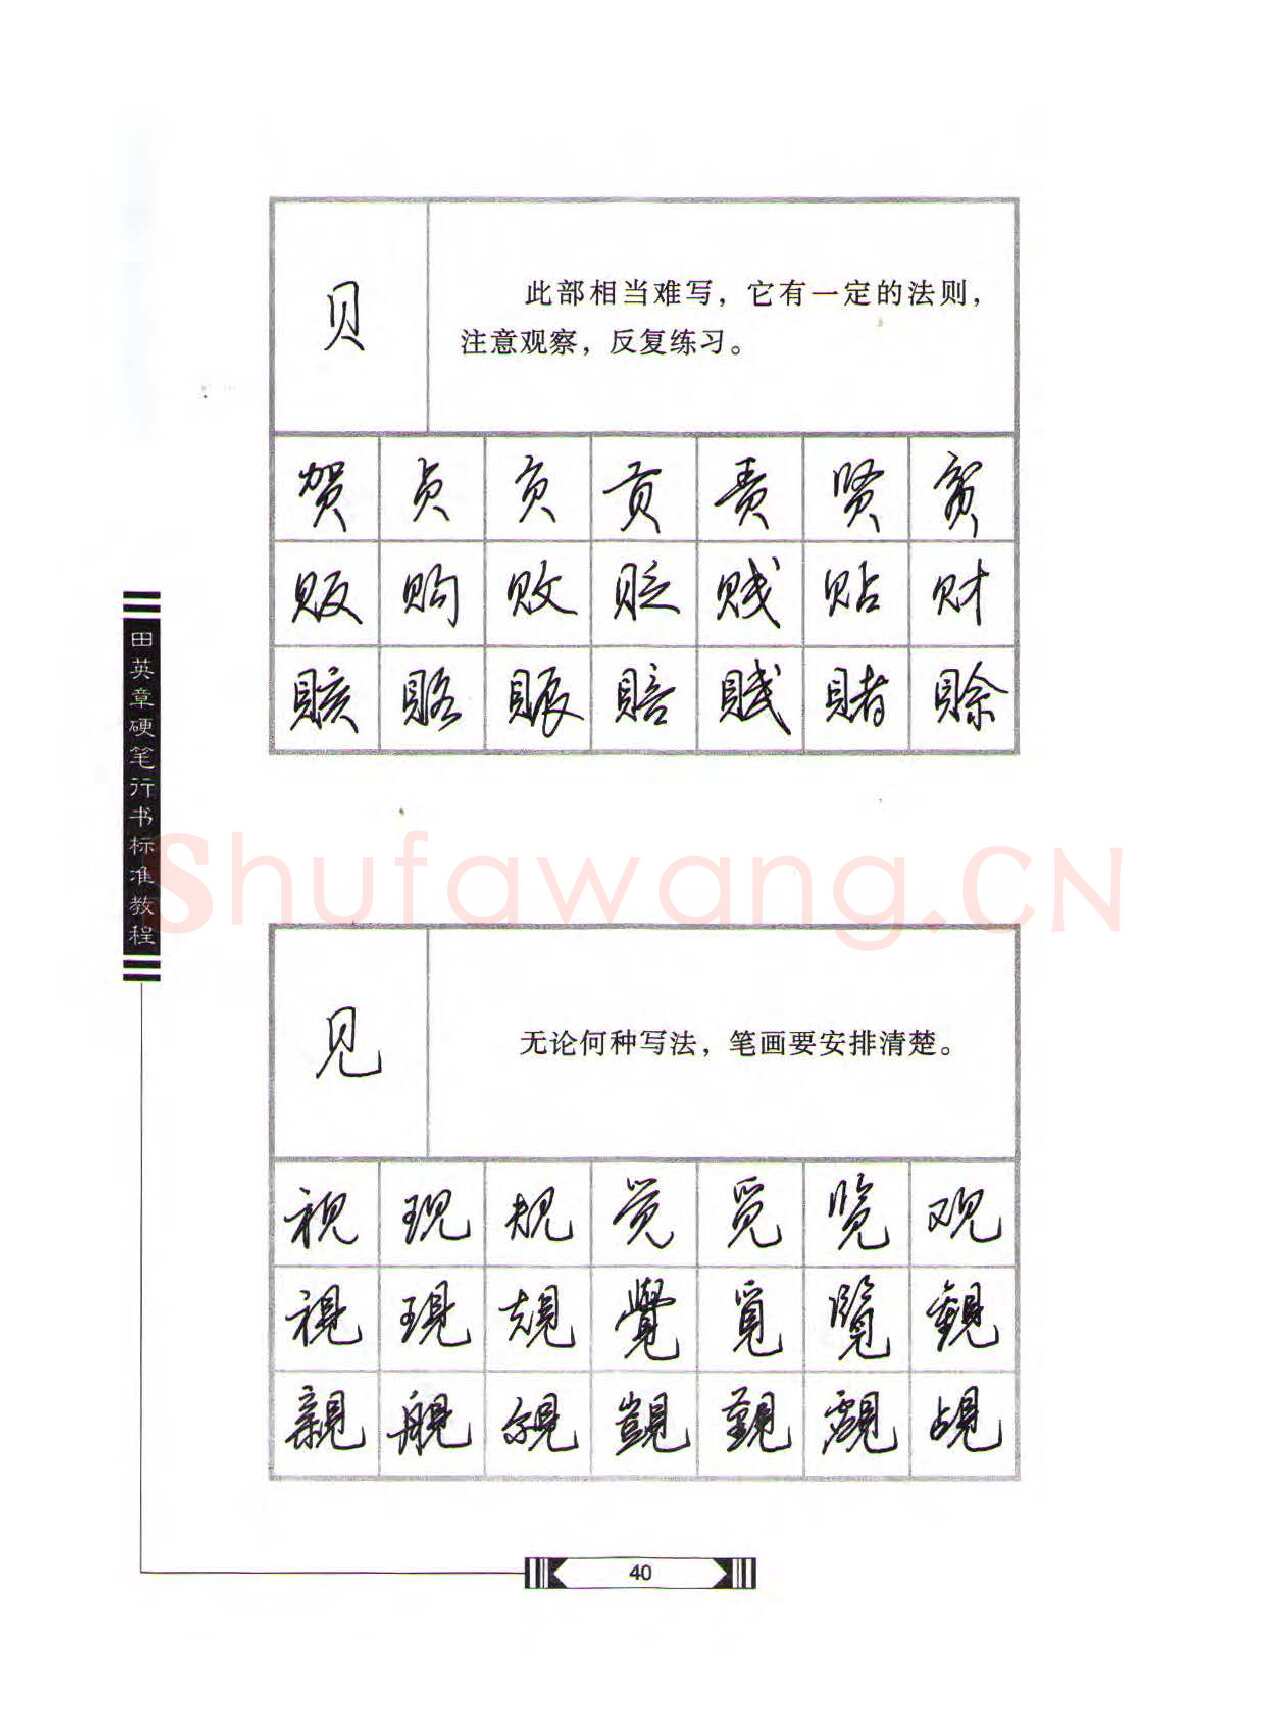 贝
此部相当难写，它有一定的法则，
注意观察，反复练习。
贺 贞 负 贡 责 贤 贫
贩 购 败 贬 贱 贴 财
赅 赂 赈 赔 赋 赌 赊
田英章硬笔行书标准教程
Shufawang.CN
见
无论何种写法，笔画要安排清楚。
视 现 规 觉 觅 览 观
視 現 規 覺 覓 覽 觀
親 覦 覬 覲 覷 覘
40